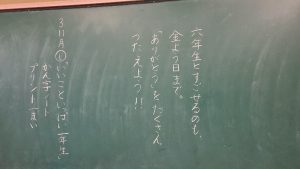 六年生とすごせるのも、
金よう日まで。
「ありがとう」をたくさん
つたえよう!!
3月11日 ①「いいこといっぱい一年生」
かん字ノート
プリント一まい